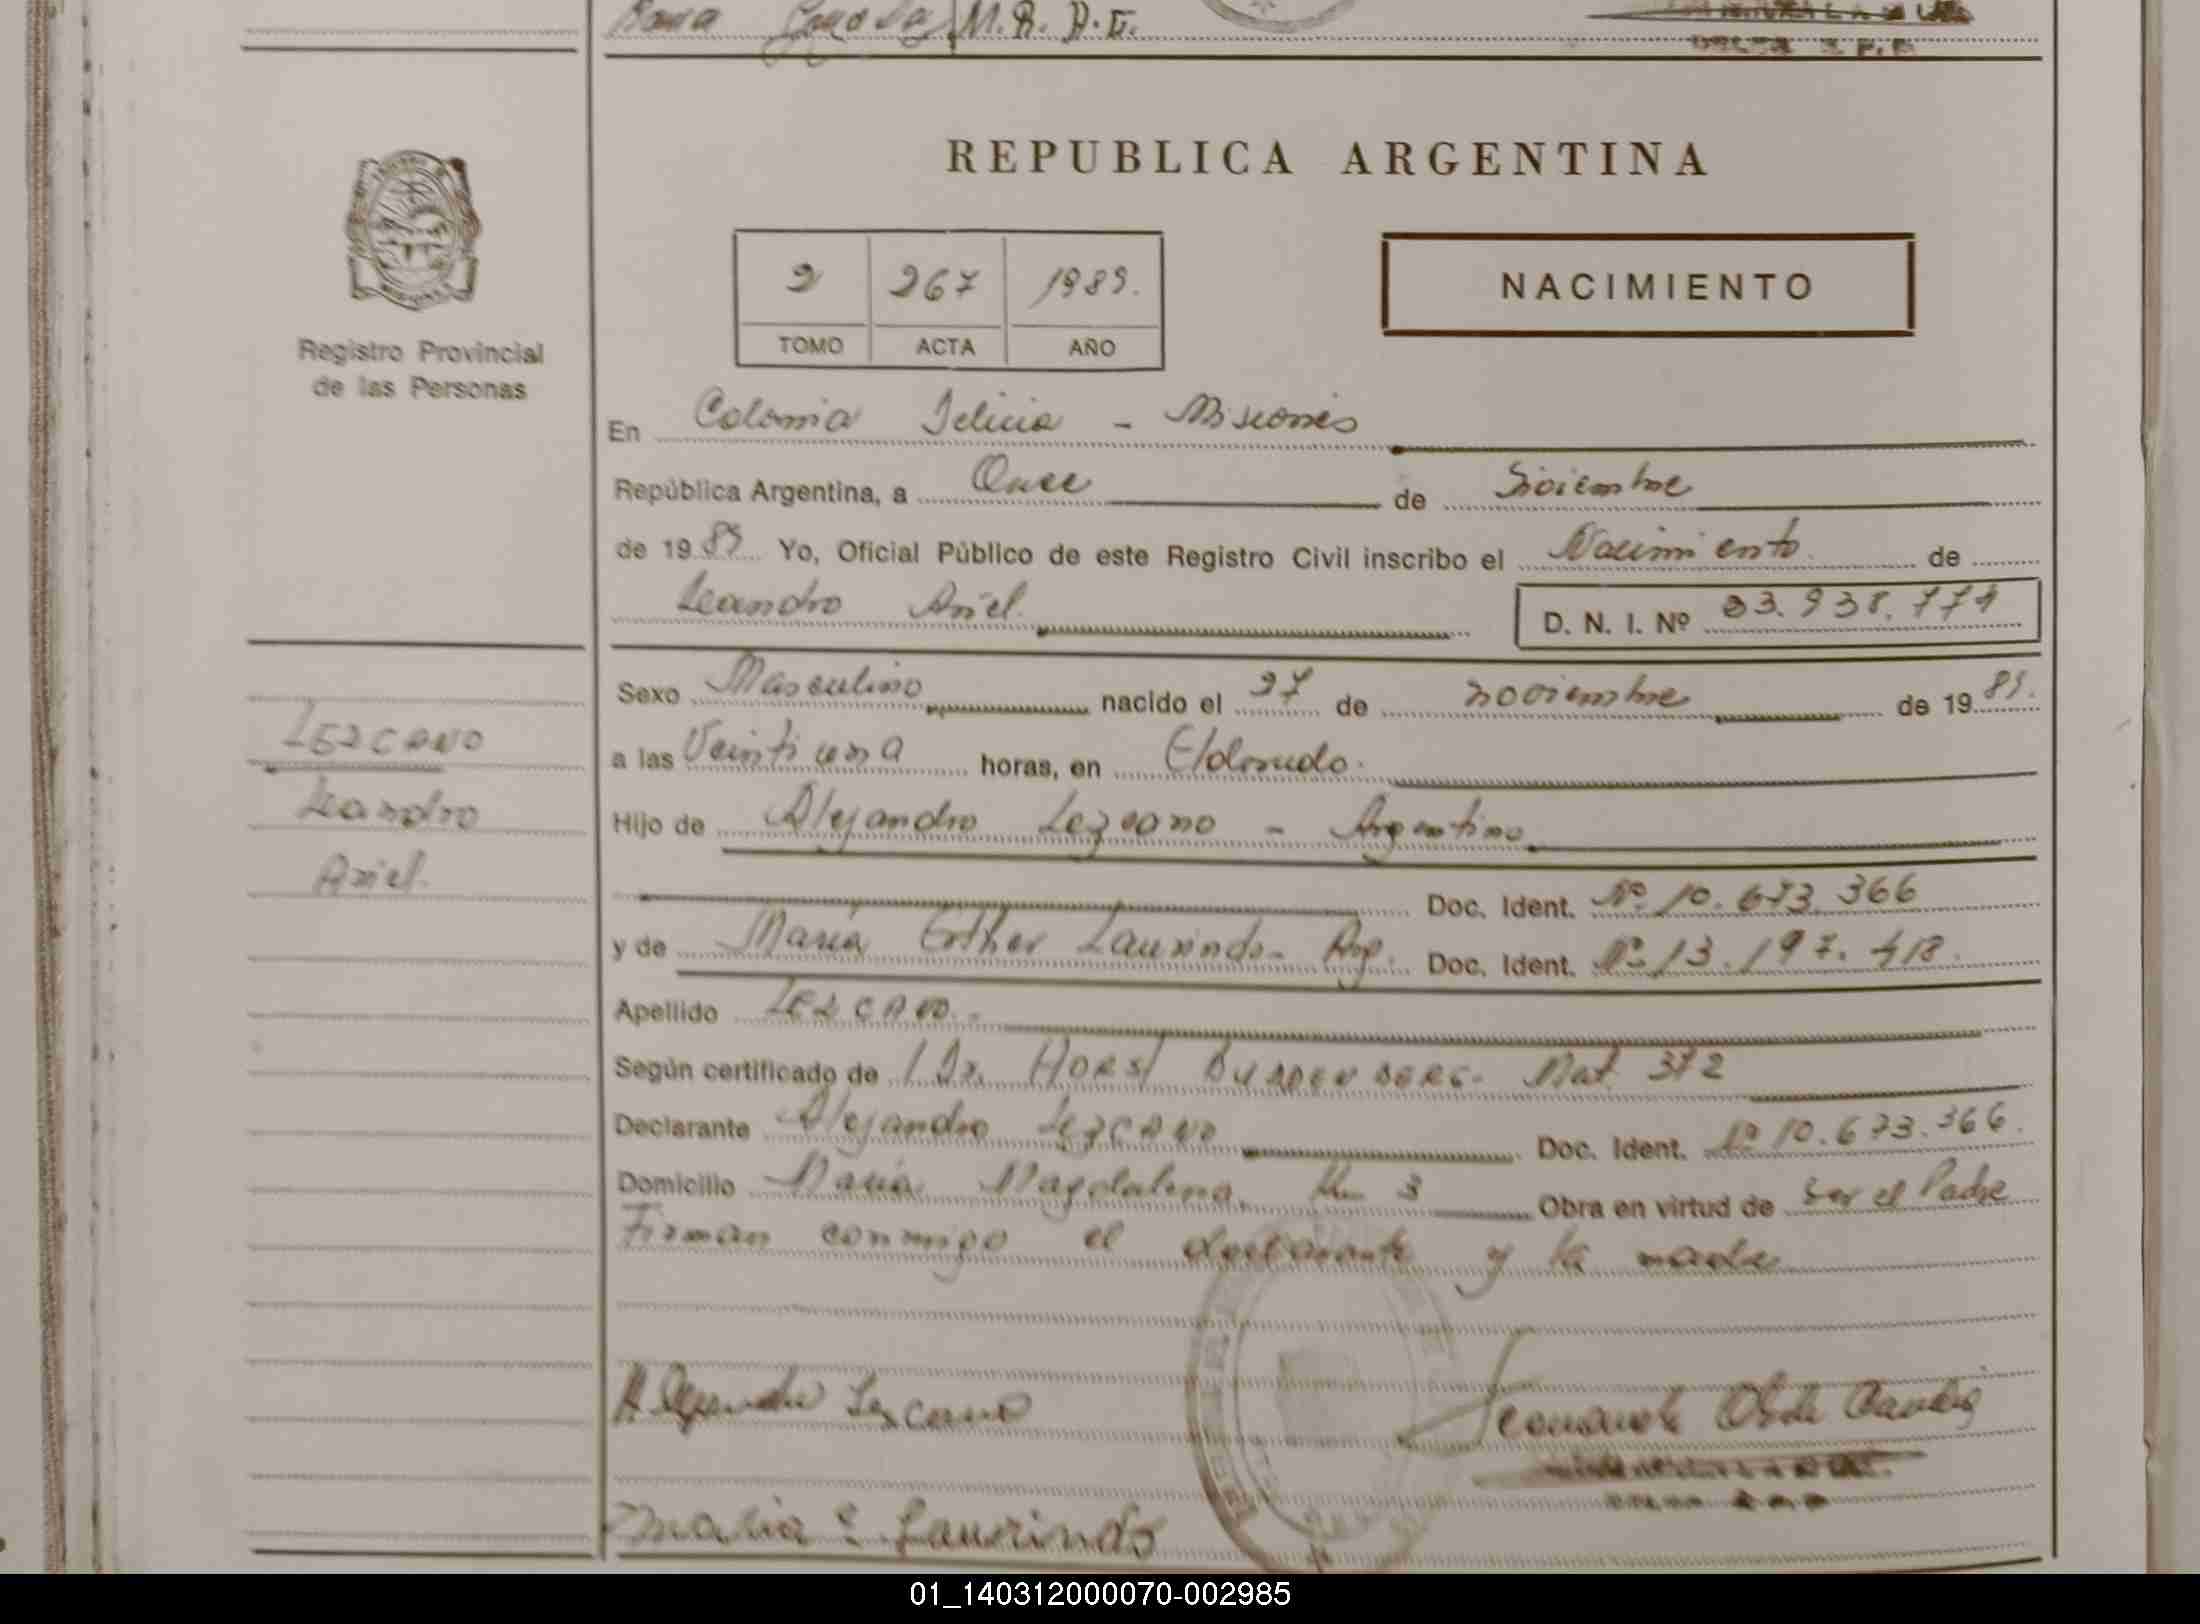 M. R. D. G.
REPUBLICA ARGENTINA
2 267 1989.
TOMO ACTA AÑO
NACIMIENTO
Registro Provincial
de las Personas
En Colonia Delicia - Misiones
República Argentina, a Once de Diciembre
de 1989 Yo, Oficial Público de este Registro Civil inscribo el Nacimiento de
Leandro Ariel.
D. N. I. Nº 33.938.774
Sexo Masculino nacido el 27 de noviembre de 1989.
LEZCANO
a las Veintiuna horas, en Eldorado.
Leandro
Hijo de Alejandro Lezcano - Argentino
Ariel.
Doc. Ident. Nº 10.673.366
y de María Esther Laurindo - Arg. Doc. Ident. Nº 13.197.418
Apellido LEZCANO.-
Según certificado de Dr. HORST Mat. 372
Declarante Alejandro LEZCANO Doc. Ident. Nº 10.673.366.
Domicilio María Magdalena, Km 3 Obra en virtud de Ser el Padre
Firman conmigo el declarante y la madre
Alejandro Lezcano
Maria E Laurindo
01_140312000070-002985